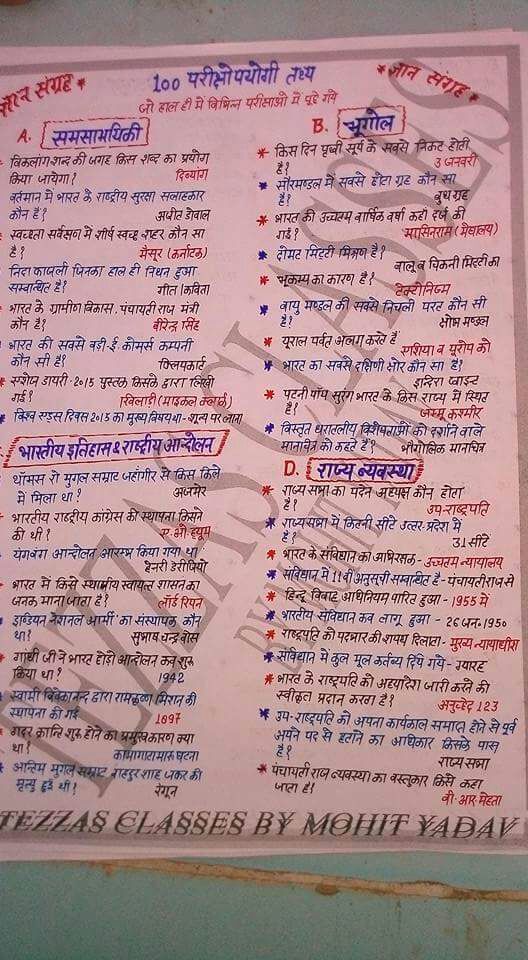 ज्ञान संग्रह *
100 परीक्षोपयोगी तथ्य
* ज्ञान संग्रह *
जो हाल ही में विभिन्न परीक्षाओं में पूछे गये
A. समसामयिकी
विकलांग शब्द की जगह किस शब्द का प्रयोग
किया जायेगा? दिव्यांग
वर्तमान में भारत के राष्ट्रीय सुरक्षा सलाहकार
कौन है? अजीत डोवाल
स्वच्छता सर्वेक्षण में शीर्ष स्वच्छ शहर कौन सा
है? मैसूर (कर्नाटक)
निदा फाजली जिनका हाल ही निधन हुआ
सम्बन्धित है? गीत/कविता
भारत के ग्रामीण विकास, पंचायती राज मंत्री
कौन है? बीरेन्द्र सिंह
भारत की सबसे बड़ी ई कोमर्स कम्पनी
कौन सी है? फ्लिपकार्ट
डायरी-2015 पुस्तक किसके द्वारा लिखी
गई? खिलाड़ी (माइकल क्लार्क)
विश्व एड्स दिवस 2015 का मुख्य विषय था - शून्य पर लाना
भारतीय इतिहास & राष्ट्रीय आन्दोलन
थॉमस रो मुगल सम्राट जहांगीर से किस किले
में मिला था? अजमेर
भारतीय राष्ट्रीय कांग्रेस की स्थापना किसने
की थी? ए.ओ. ह्यूम
यंग बंगाल आन्दोलन आरम्भ किया गया था
हेनरी डेरीजियो
भारत में किसे स्थानीय स्वायत्त शासन का
जनक माना जाता है? लॉर्ड रिपन
इण्डियन नेशनल आर्मी का संस्थापक कौन
था? सुभाष चन्द्र बोस
गांधी जी ने भारत छोड़ो आन्दोलन कब शुरू
किया था? 1942
स्वामी विवेकानन्द द्वारा रामकृष्ण मिशन की
स्थापना की गई 1897
गदर क्रान्ति शुरू होने का प्रमुख कारण क्या
था? कामागाटामारू घटना
अन्तिम मुगल सम्राट बहादुर शाह जफर की
मृत्यु हुई थी? रंगून
B. भूगोल
* किस दिन पृथ्वी सूर्य के सबसे निकट होती
है? 3 जनवरी
* सौरमण्डल में सबसे छोटा ग्रह कौन सा
है? बुध ग्रह
* भारत की उच्चतम वार्षिक वर्षा कहाँ दर्ज की
गई? मासिनराम (मेघालय)
* दोमट मिट्टी मिश्रण है?
बालू व चिकनी मिट्टी का
* भूकम्प का कारण है? टेक्टोनिज्म
* वायु मण्डल की सबसे निचली परत कौन सी
है? क्षोभ मण्डल
* यूराल पर्वत अलग करते हैं
एशिया व यूरोप को
* भारत का सबसे दक्षिणी छोर कौन सा है?
इन्दिरा प्वाइंट
* पटनी टॉप सुरंग भारत के किस राज्य में स्थित
है? जम्मू कश्मीर
* विस्तृत धरातलीय विशेषताओं को दर्शाने वाले
मानचित्र को कहते हैं? भौगोलिक मानचित्र
D. राज्य व्यवस्था
* राज्य सभा का पदेन अध्यक्ष कौन होता
है? उप-राष्ट्रपति
* राज्यसभा में कितनी सीटें उत्तर प्रदेश में
है? 31 सीटें
* भारत के संविधान का अभिरक्षक - उच्चतम न्यायालय
* संविधान में 11वीं अनुसूची सम्बन्धित है - पंचायतीराज से
* हिन्दू विवाह अधिनियम पारित हुआ - 1955 में
* भारतीय संविधान कब लागू हुआ - 26 जन. 1950
* राष्ट्रपति को पदभार की शपथ दिलाता - मुख्य न्यायाधीश
* संविधान में कुल मूल कर्तव्य दिये गये - ग्यारह
* भारत के राष्ट्रपति को अध्यादेश जारी करने की
स्वीकृत प्रदान करता है? अनुच्छेद 123
* उप-राष्ट्रपति को अपना कार्यकाल समाप्त होने से पूर्व
अपने पद से हटाने का अधिकार किसके पास
है? राज्य सभा
* पंचायती राज व्यवस्था का वस्तुकार किसे कहा
जाता है? बी. आर. मेहता
TEZZAS CLASSES BY MOHIT YADAV